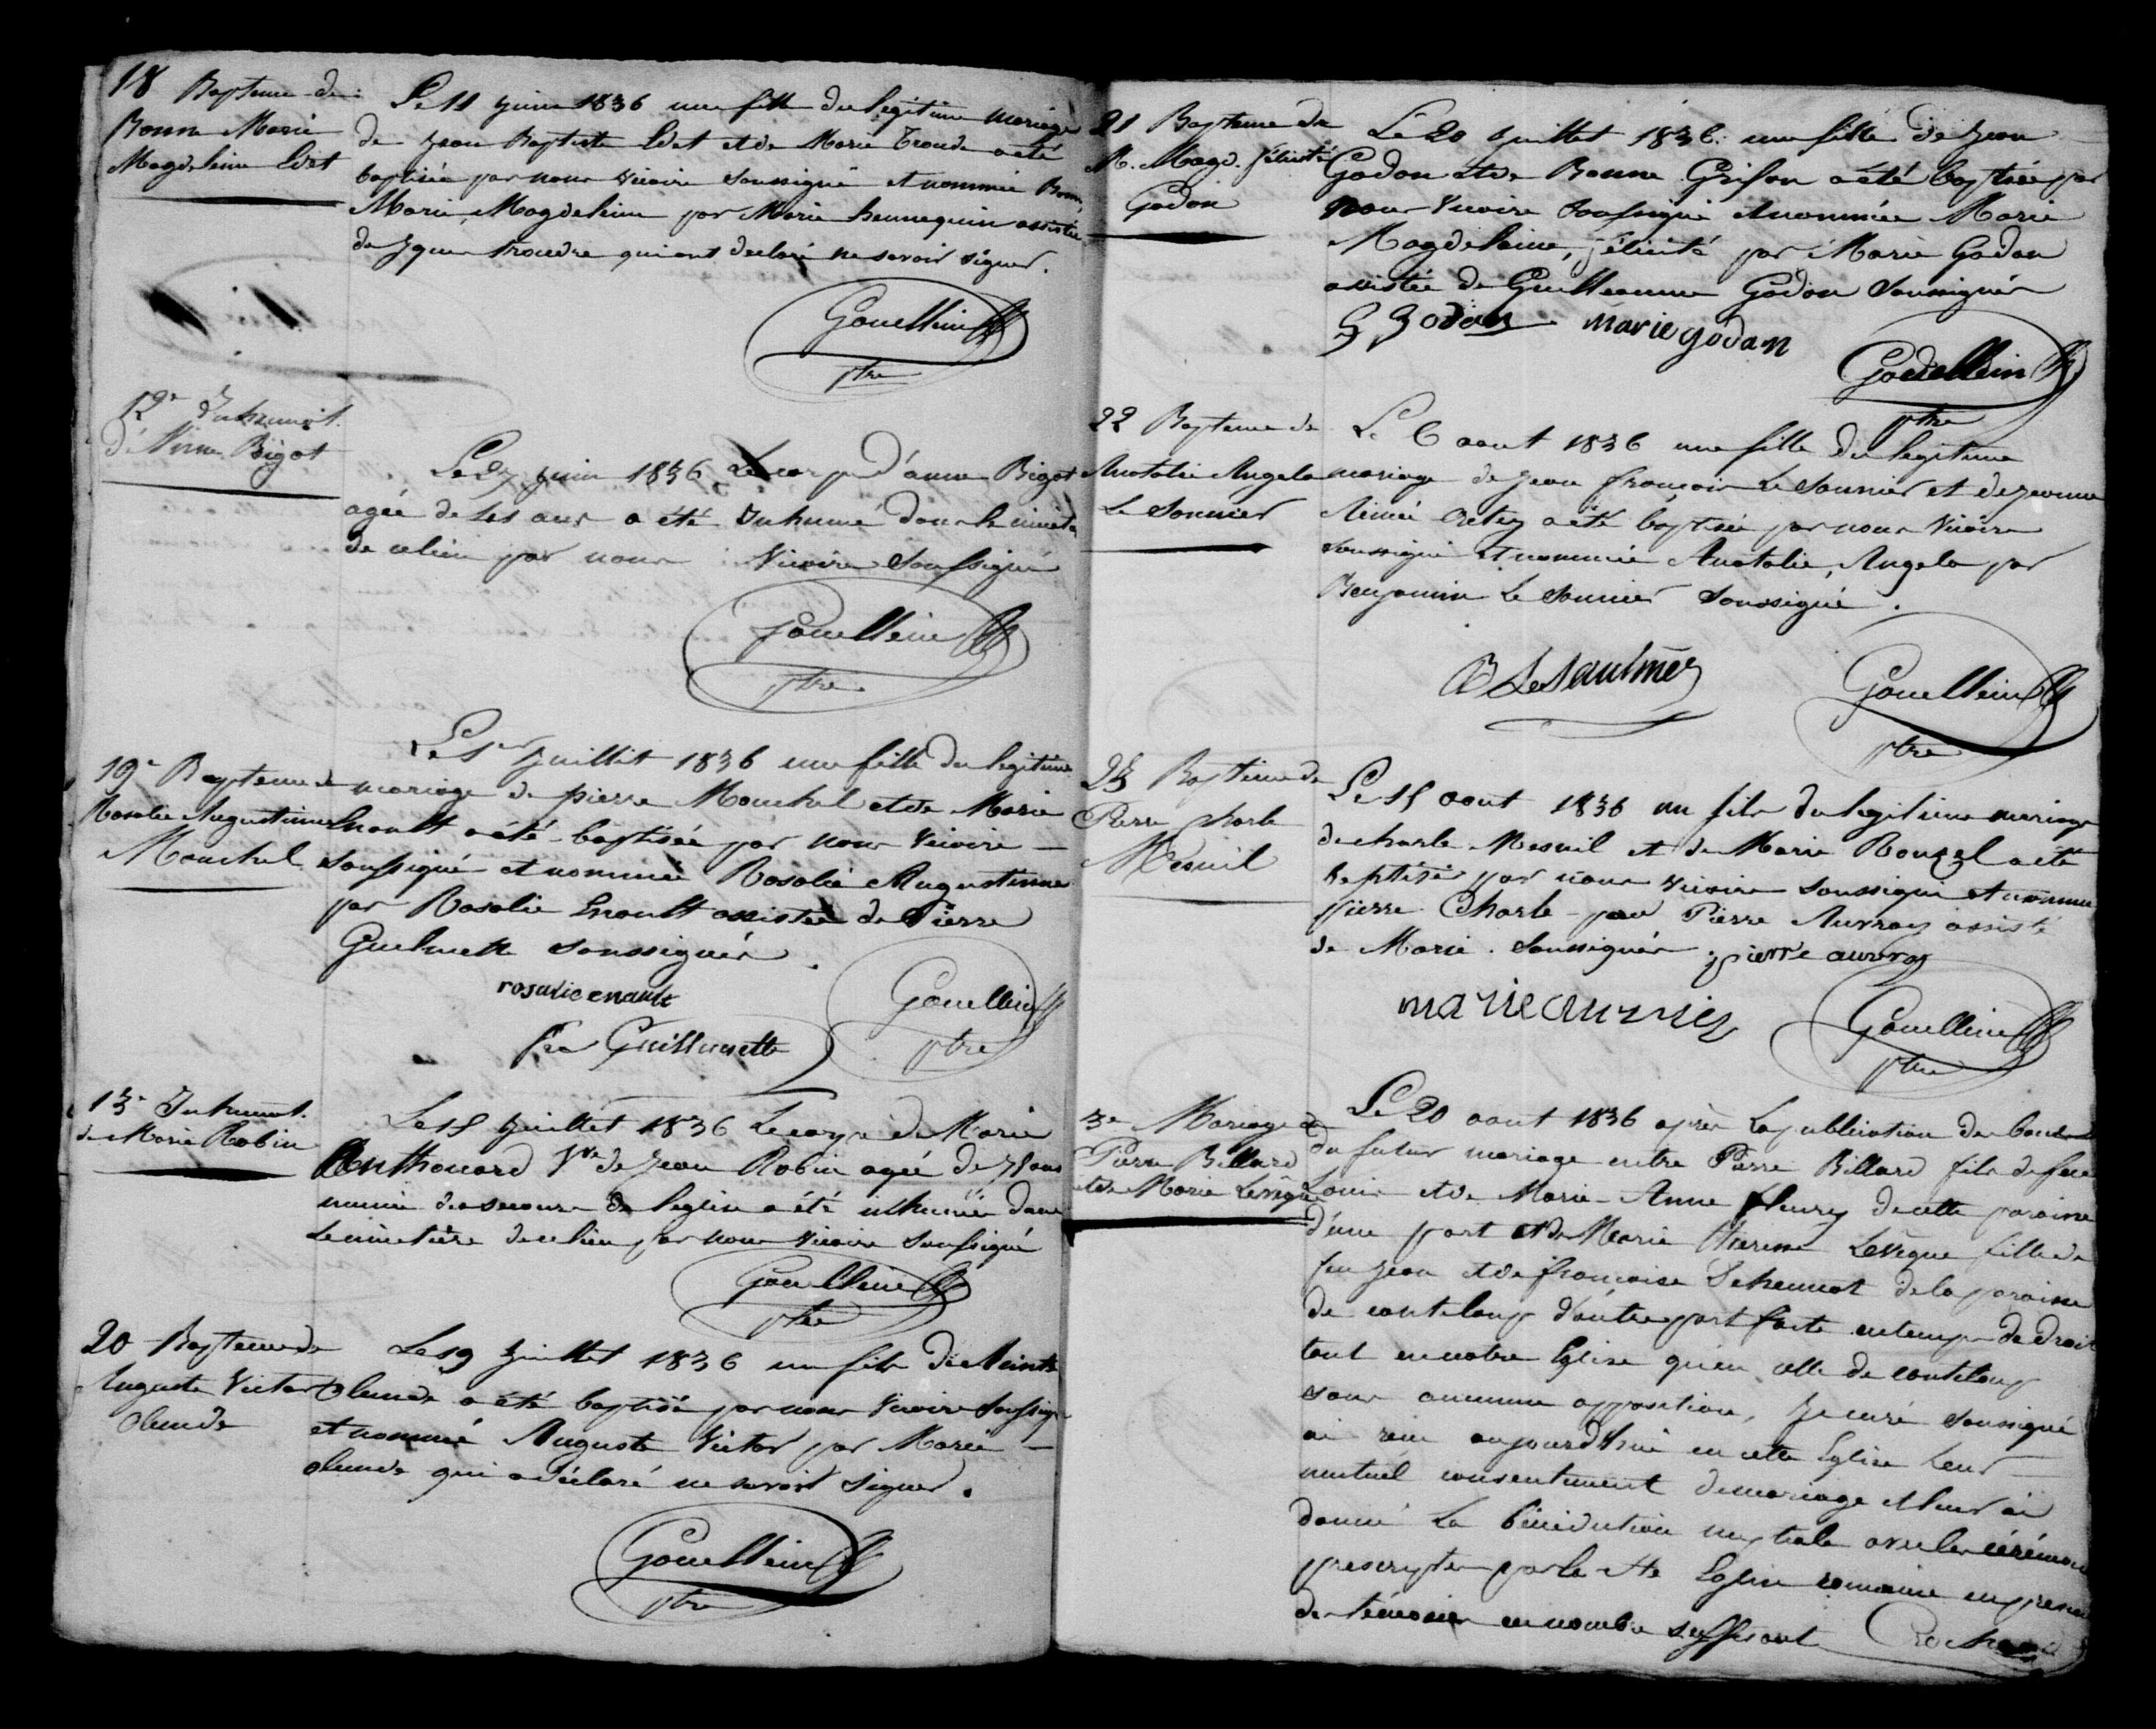 18 Bapteme de
Bonne Marie
Magdeleine Edet
Le 11 juin 1836 une fille du legitime mariage
de Jean Baptiste Edet et de Marie Troude a été
baptisée par nous vicaire soussigné et nommée Bonne,
Marie, Magdeleine par Marie hennequin assistée
de troudre qui ont declaré ne savoir signer.
Gouellein
ptre
12e Inhumat.
d'Anne Bigot
Le 27 juin 1836 Le corps d'anne Bigot
agée de ans a été Inhumé dans le cimetière
de ce lieu par nous Vicaire Soussigné
Gouellein
ptre
19e Bapteme de
Rosalie Augustinne
Mouchel
Le 1er juillit 1836 une fille du legitime
mariage de pierre Mouchel et de Marie
Enault a été baptisée par nous vicaire
Soussigné et nommée Rosalie Augustinne
par Rosalie Enault assistée de Pierre
Guelmette soussignés.
rosalie enault
Guillmette
Gouellein
ptre
13e Inhumat.
de Marie Robin
Le 15 juillet 1836 Le corps de Marie
Anthouard Vve de Jean Robin agée de 75 ans
munie des secours de l'eglise a été inhumée dans
Le cimetière de ce lieu par nous Vicaire Soussigné
Gouellein
ptre
20 Bapteme de
Auguste Victor
olende
Le 19 juillet 1836 un fils de
olende a été baptisé par nous Vicaire Soussigné
et nommé Auguste Victor par Marie
olende qui a déclaré ne savoir signer.
Gouellein
ptre
21 Bapteme de
M. Magd. félicité
Godon
Le 20 juillet 1836. une fille de Jean
Godon et de Bonne Grison a été baptisée par
nous vicaire soussigné et nommée Marie
Magdeleine, félicité par Marie Godon
assistée de Guilleaume Godon Soussignés
G Godan marie godan
Gouellein
ptre
22 Bapteme de
Anatolie Angela
Le Sonnier
Le 6 aout 1836 une fille du legitime
mariage de Jean françois Le Sonnier et de Jeanne
Aimée Cretey a été baptisée par nous Vicaire
soussigné et nommée Anatolie, Angela par
Benjamin Le Sonnier soussigné.
B LeSaulnier
Gouellein
ptre
23 Bapteme de
Pierre charle
Mesnil
Le 15 aout 1836 un fils du legitime mariage
de charle Mesnil et de Marie Rouzel a été
baptisé par nous vicaire soussigné et nommé
pierre Charle par Pierre Auvray assisté
de Marie. soussignés. pierre auvray
marie auvrey
Gouellein
ptre
3e Mariage de
Pierre Billard
et de Marie Levêque
Le 20 aout 1836 après La publication des bans
du futur mariage entre Pierre Billard fils de feu
Louis et de Marie-Anne fleury de cette paroisse
d'une part et de Marie Therese Levêque fille de
feu Jean et de françoise de la paroisse
de canteloup d'autre part faite en temps de droit
tant en notre Eglise qu'en celle de canteloup
sans aucunne opposition, Je curé soussigné
ai reçu aujourd'hui en cette Eglise leur
mutuel consentement de mariage et leur ai
donné La bénédiction nuptiale avec les cérémonies
prescriptes par la Ste Eglise romaine en presence
de témoins en nombre suffisant